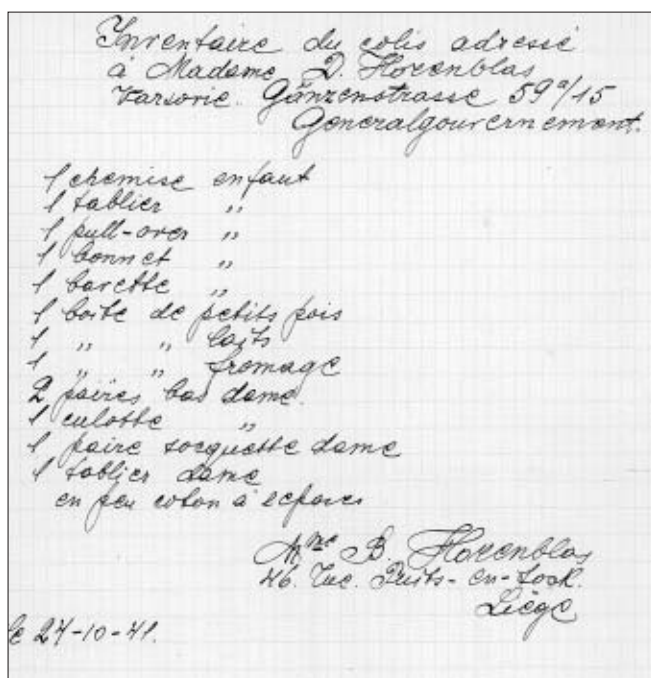 Inventaire du colis adressé
à Madame D. Florenblas
Varsovie. Gänzenstrasse 59ª/15
Generalgouvernement.
1 chemise enfant
1 tablier „
1 pull-over „
1 bonnet „
1 barette „
1 boite de petits pois
1 „ „ laits
1 „ „ fromage
2 paires bas dame.
1 culotte „
1 paire socquette dame
1 tablier dame
en peu coton à repasser
Mme B. Florenblas
46. rue. Puits-en-Sock.
Liège
le 27-10-41.